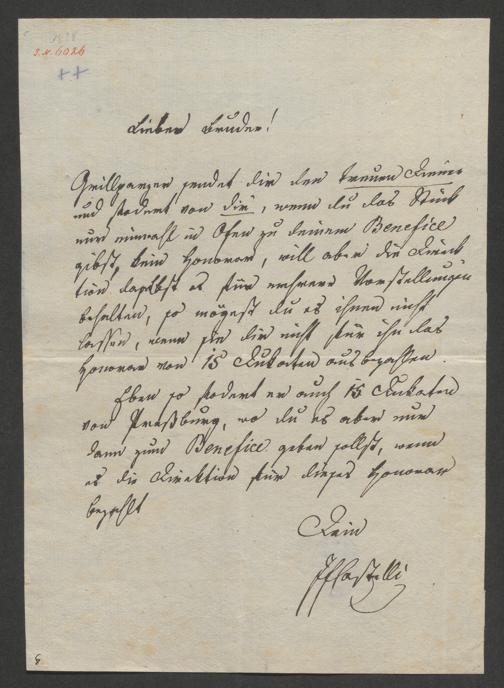 1828
I.N. 6026
++
Lieber Bruder!
Grillparzer sendet dir den treuen Diener
und fodert von dir, wenn du das Stück
nur einmahl in Ofen zu deinem Benefice
gibst, kein Honorar, will aber die Direk
tion daselbst es für mehrere Vorstellungen
behalten, so mögest du es ihnen nicht
lassen, wenn sie dir nicht für ihn das
Honorar von 15 Dukaten ausbezahlen.
Eben so fodert er auch 15 Dukaten
von Preßburg, wo du es aber nur
dann zum Benefice geben sollst, wenn
es die Direktion für dieses Honorar
bezahlt
Dein
IFCastelli